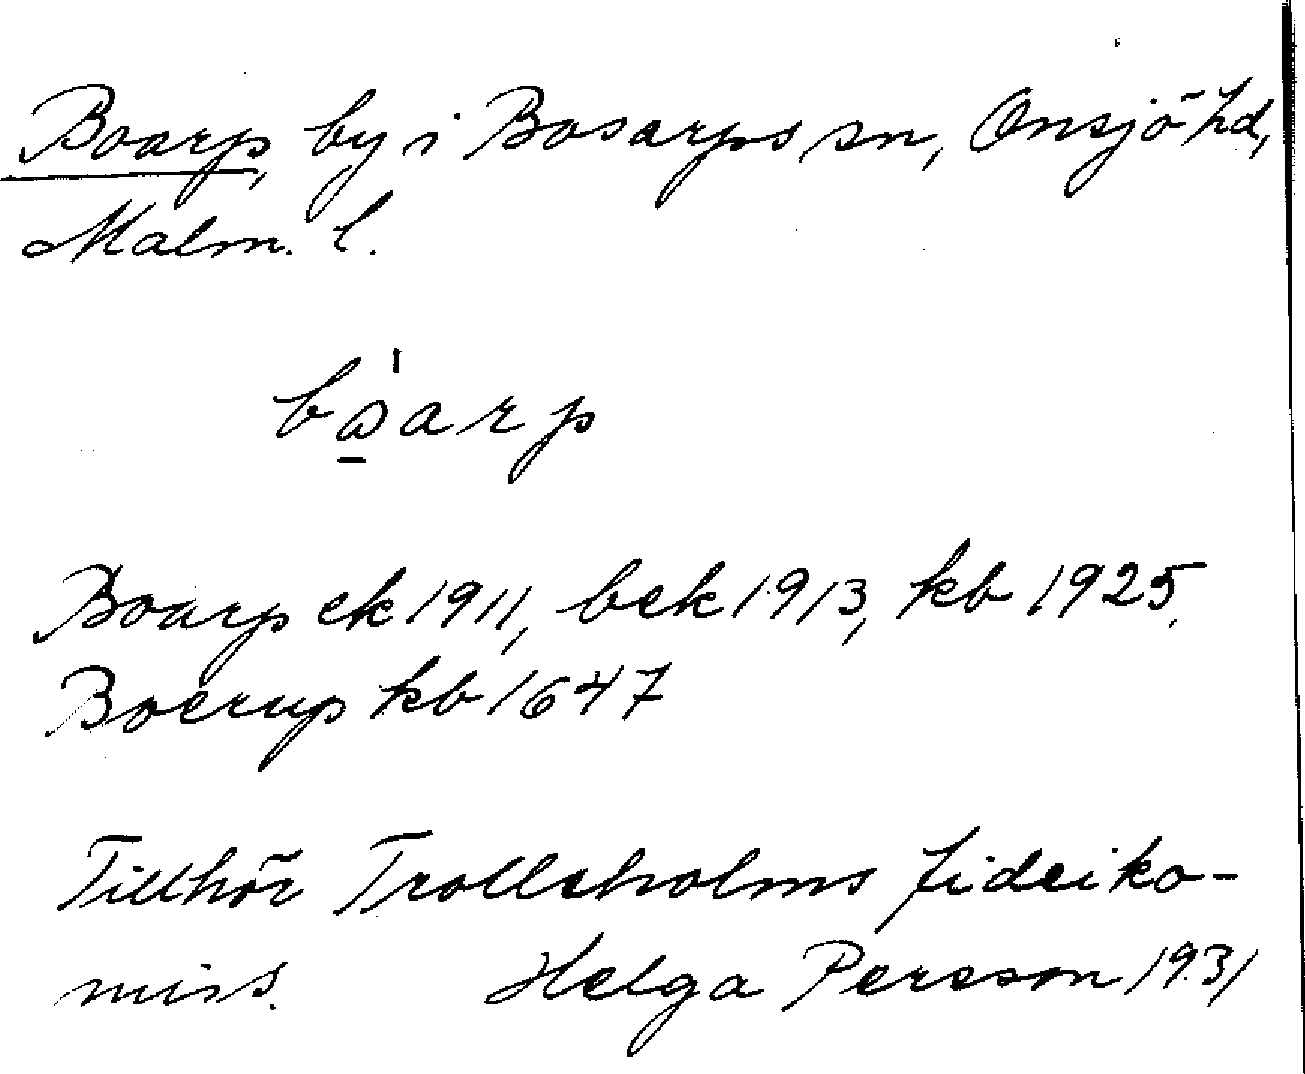 Boarp, by i Bosarps sn, Onsjö hd,
Malm. l.
bɷ̠'arp
Boarp ek 1911, bek 1913, kb 1925.
Boerup kb 1647
Tillhör Trolleholms fideiko-
miss. Helga Persson 1931